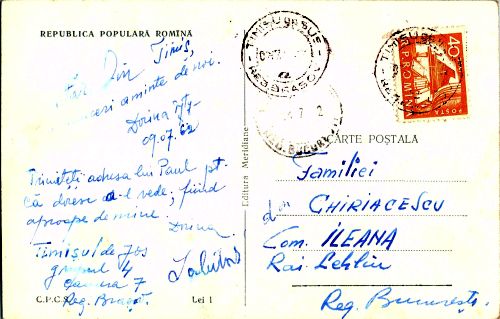 REPUBLICA POPULARĂ ROMÎNĂ
Din Timiș,
aminte de noi.
Dorina
09.07.62
Trimiteți adresa lui Paul pt.
că doresc a-l vede, fiind
aproape de mine.
Dorina
Timișul de Jos
grupul 4
camera 7
Reg. Brașov.
C.P.C.S.
Lei 1
Editura Meridiane
TIMIȘU DE JOS
REG. BRAȘOV
40
R.P.ROMINA
POSTA
CARTE POȘTALĂ
Familiei
CHIRIACESCU
Com. ILEANA
Rai. Lehliu
Reg. București